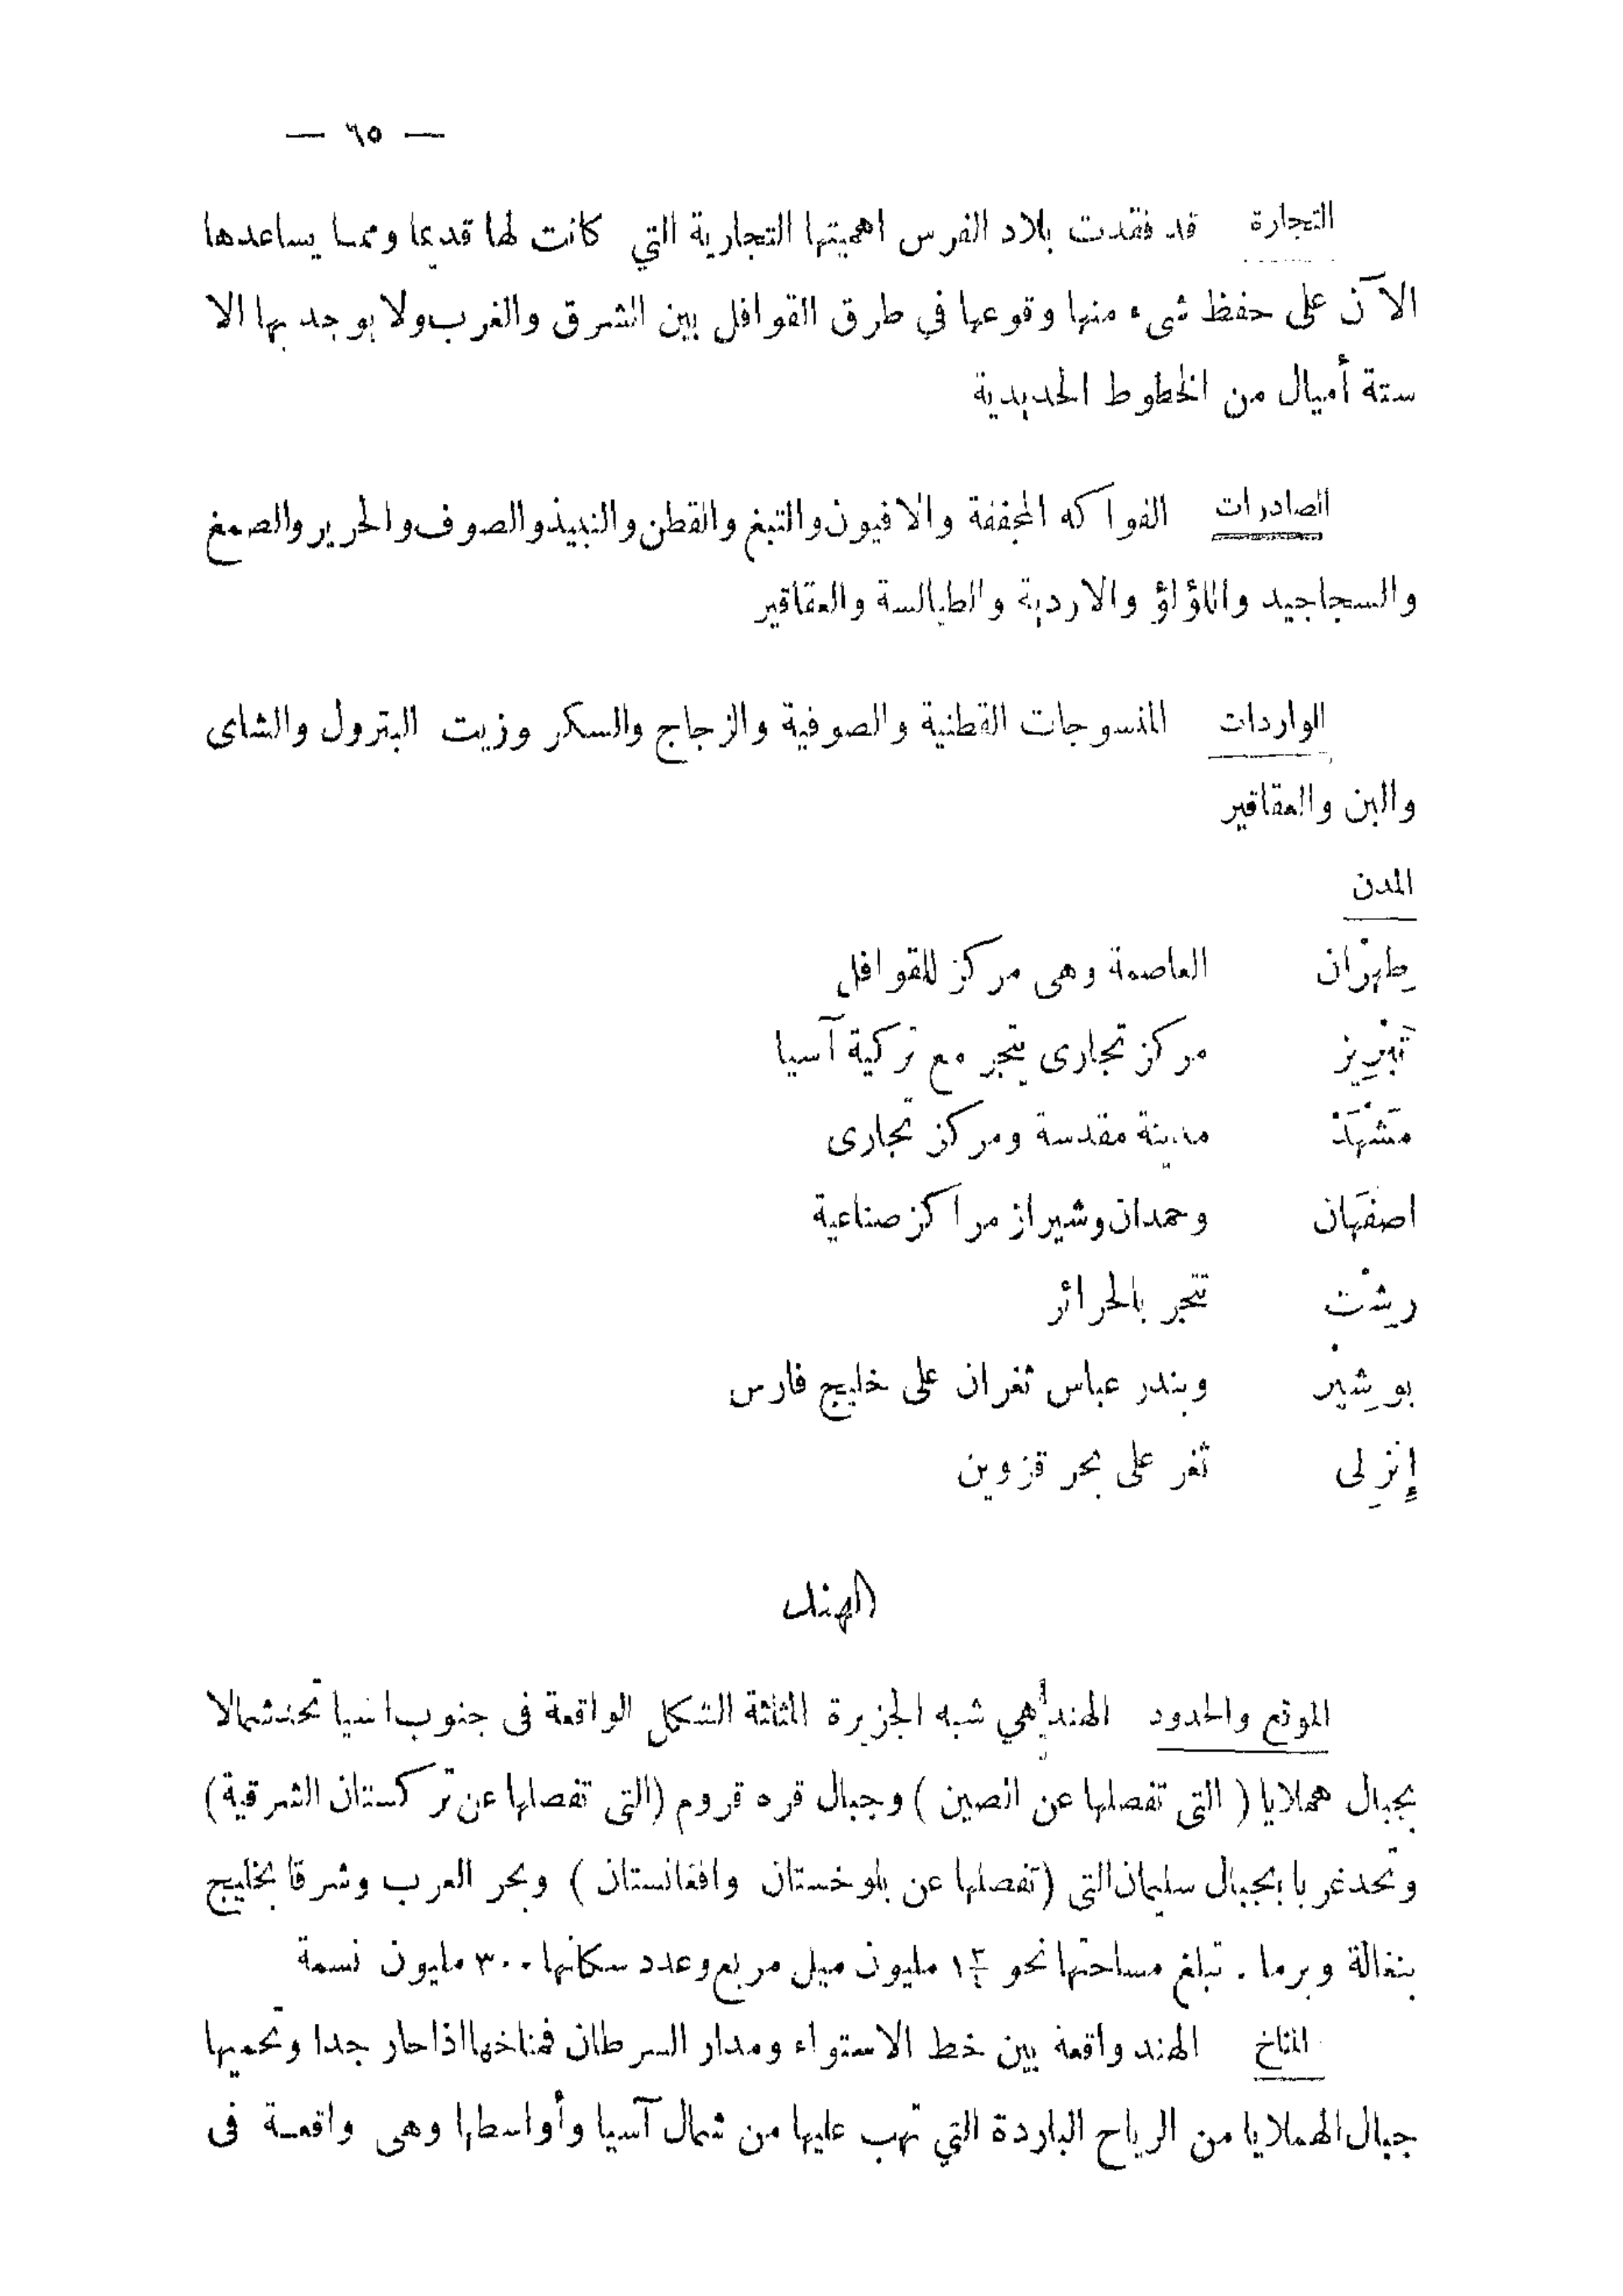 — ٦٥ —
التجارة قد فقدت بلاد الفرس اهميتها التجارية التي كانت لها قديما ومما يساعدها
الآن على حفظ شيء منها وقوعها في طرق القوافل بين الشرق والغرب ولا يوجد بها الا
ستة أميال من الخطوط الحديدية
الصادرات الفواكه المجففة والافيون والتبغ والقطن والنبيذ والصوف والحرير والصمغ
والسجاجيد واللؤلؤ والاردية والطيالسة والعقاقير
الواردات المنسوجات القطنية والصوفية والزجاج والسكر وزيت البترول والشاى
والبن والعقاقير
المدن
طِهْران العاصمة وهى مركز للقوافل
تَبْرِيز مركز تجارى يتجر مع تركية آسيا
مَشْهَدْ مدينة مقدسة ومركز تجارى
اصفَهان وحمدان وشيراز مراكز صناعية
رِشْت تتجر بالحرائر
بوشِيْر وبندر عباس ثغران على خليج فارس
إِنْزِلى ثغر على بحر قزوين
الهند
الموقع والحدود الهند هي شبه الجزيرة المثلثة الشكل الواقعة فى جنوب اسيا تحد شمالا
بجبال هملايا ( التى تفصلها عن الصين ) وجبال قره قروم (التى تفصلها عن تركستان الشرقية)
وتحد غربا بجبال سليمان التى (تفصلها عن بلوخستان وافغانستان ) وبحر العرب وشرقا بخليج
بنغالة وبرما . تبلغ مساحتها نحو ١¾ مليون ميل مربع وعدد سكانها ٣٠٠ مليون نسمة
المناخ الهند واقعة بين خط الاستواء ومدار السرطان فمناخها اذا حار جدا وتحميها
جبال الهملايا من الرياح الباردة التي تهب عليها من شمال آسيا وأواسطها وهى واقعة فى